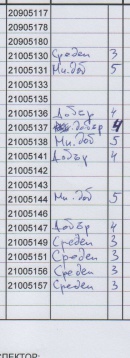 20905117
20905178
20905180
21005130 Среден 3
21005131 Мн. доб 5
21005133
21005135
21005136 Добър 4
21005137 добър 4
21005138 Мн. доб 5
21005141 Добър 4
21005142
21005143
21005144 Мн. доб 5
21005146
21005147 Добър 4
21005149 Среден 3
21005151 Среден 3
21005156 Среден 3
21005157 Среден 3